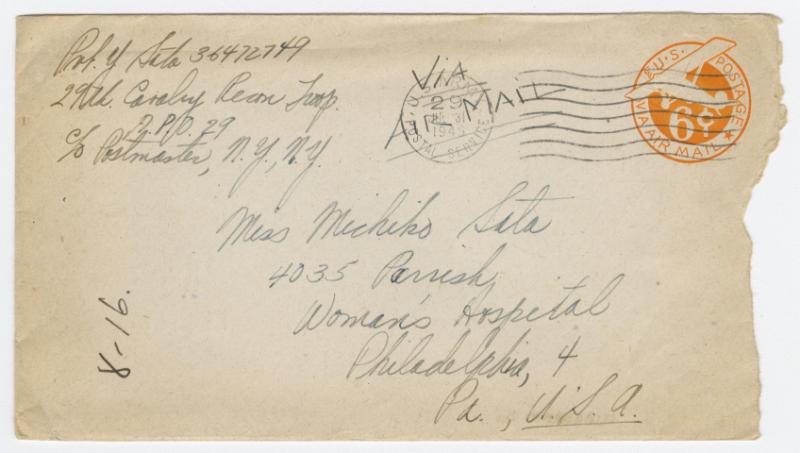 Pvt. Y Sata 36472749
29th. Cavalry Recon Troop.
A.P.O. 29
c/o Postmaster, N.Y., N.Y.
VIA
AIR MAIL
U.S. ARMY
29
1945
POSTAL SERVICE
U.S. POSTAGE
6¢
VIA AIR MAIL
Miss Michiko Sata
4035 Parrish,
Woman's Hospital
Philadelphia, 4
Pa., U.S.A.
8-16.